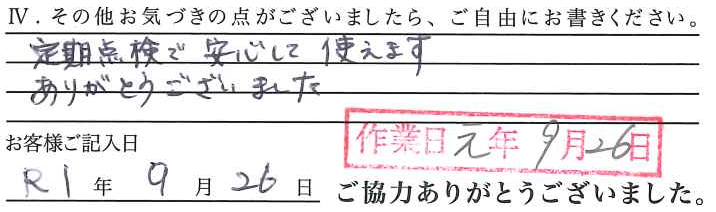 Ⅳ．その他お気づきの点がございましたら、ご自由にお書きください。
定期点検で 安心して 使えます
ありがとうございました
作業日元年9月26日
お客様ご記入日
R1年9月26日
ご協力ありがとうございました。